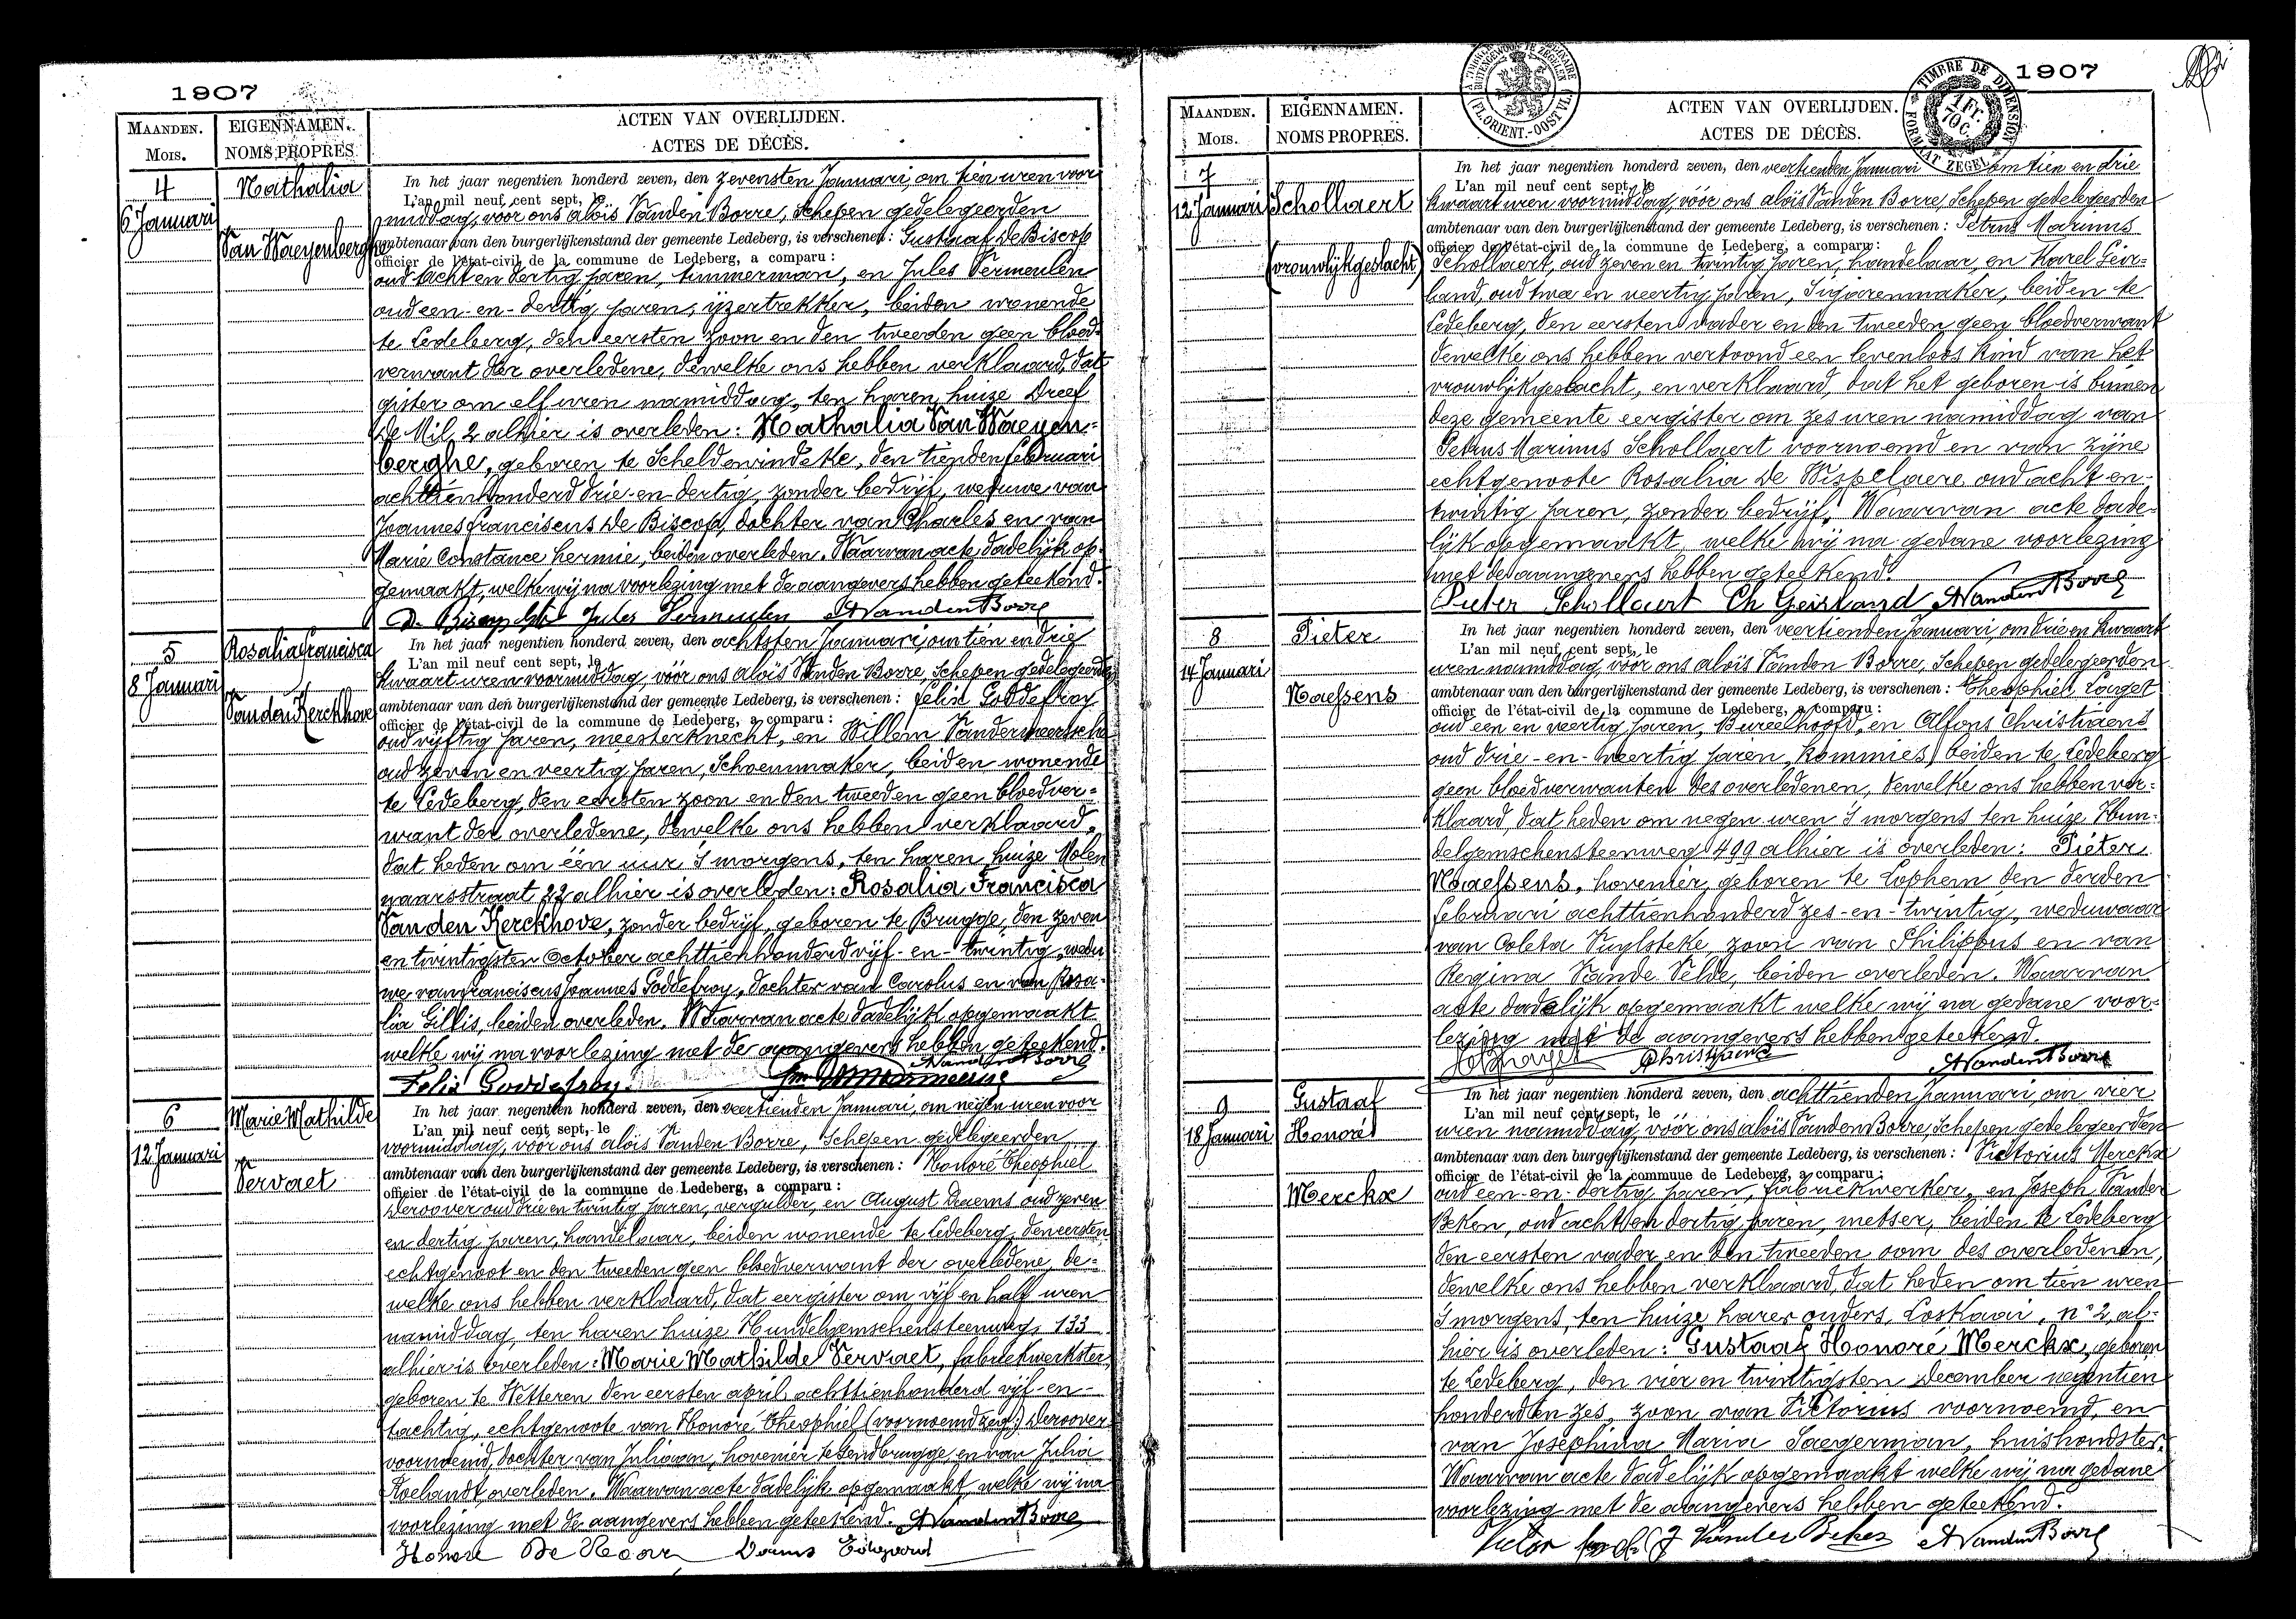 1907
MAANDEN.
MOIS.
EIGENNAMEN.
NOMS PROPRES
ACTEN VAN OVERLIJDEN.
ACTES DE DÉCÈS.
4
6 Januari
Nathalia
Van Waeyenberghe
In het jaar negentien honderd zeven, den zevensten Januari, om tien uren voor
L'an mil neuf cent sept, le
middag, voor ons Aloïs Vanden Borre, Schepen gedelegeerden
ambtenaar van den burgerlijkenstand der gemeente Ledeberg, is verschenen: Gustaaf De Biscop
officier de l'état-civil de la commune de Ledeberg, a comparu:
oud acht en dertig jaren, timmerman, en Jules Vermeulen
oud een-en-dertig jaren, ijzertrekker, beiden wonende
te Ledeberg, den eersten zoon en den tweeden geen bloed-
verwant der overledene, dewelke ons hebben verklaard, dat
gister om elf uren namiddag, ten haren huize Dreef
de Mil, 2 alhier is overleden: Nathalia Van Waeyen-
berghe, geboren te Scheldewindeke, den tienden februari
achttienhonderd drie-en-dertig, zonder bedrijf, weduwe van
Joannes franciscus De Biscop, dochter van Charles en van
Marie Constance hermie, beiden overleden. Waarvan acte dadelijk op-
gemaakt, welke wij na voorlezing met de aangevers hebben geteekend.
Jules Vermeulen AVandenBorre
5
8 Januari
Rosalia francisca
Van den Kerckhove
In het jaar negentien honderd zeven, den achtsten Januari, om tien en drie
L'an mil neuf cent sept, le
kwaart uren voormiddag, vóór ons Aloïs Vanden Borre, Schepen gedelegeerden
ambtenaar van den burgerlijkenstand der gemeente Ledeberg, is verschenen: felix Goddefroy
officier de l'état-civil de la commune de Ledeberg, a comparu:
oud vijftig jaren, meesterknecht, en Willem Vandermeersche
oud zeven en veertig jaren, Schoenmaker, beiden wonende
te Ledeberg, den eersten zoon en den tweeden geen bloedver-
want der overledene, dewelke ons hebben verklaard,
dat heden om één uur 's morgens, ten haren huize Molen
naarsstraat 22 alhier is overleden: Rosalia Francisca
Van den Kerckhove, zonder bedrijf, geboren te Brugge, den zeven
en twintigsten October achttienhonderd vijf-en-twintig, wedu
we van franciscus Joannes Goddefroy, dochter van Carolus en van Rosa-
lia Gillis, beiden overleden. Waarvan acte dadelijk opgemaakt
welke wij na voorlezing met de aangevers hebben geteekend.
Felix Goddefroy AVandenBorre
6
12 Januari
Marie Mathilde
Vervaet
In het jaar negentien honderd zeven, den veertienden Januari, om negen uren voor
L'an mil neuf cent sept, le
voormiddag, vóór ons Aloïs Vanden Borre, Schepen gedelegeerden
ambtenaar van den burgerlijkenstand der gemeente Ledeberg, is verschenen: Honoré Theophiel
officier de l'état-civil de la commune de Ledeberg, a comparu:
Deroover oud drie en twintig jaren, vergulder, en August Daems oud zeven
en dertig jaren, handelaar, beiden wonende te Ledeberg, den eersten
echtgenoot en den tweeden geen bloedverwant der overledene, de-
welke ons hebben verklaard, dat eergister om vijf en half uren
namiddag, ten haren huize Hundelgemschensteenweg, 133
alhier is overleden: Marie Mathilde Vervaet, fabriekwerkster,
geboren te Wetteren den eersten april achttienhonderd vijf-en-
tachtig, echtgenoote van Honoré Theophiel (voornoemd zeg:) Deroover
voornoemd, dochter van Juliaan, hovenier te Gendbrugge, en van Julia
Roelandt, overleden. Waarvan acte dadelijk opgemaakt, welke wij na
voorlezing met de aangevers hebben geteekend. AVandenBorre
Honoré De Roover
1907
MAANDEN.
MOIS.
EIGENNAMEN.
NOMS PROPRES.
ACTEN VAN OVERLIJDEN.
ACTES DE DÉCÈS.
(FL. ORIENT.-OOST VL.)
TIMBRE DE DIMENSION
1 Fr. 70 C.
FORMAAT ZEGEL
7
12 Januari
Schollaert
(vrouwlijkgeslacht)
In het jaar negentien honderd zeven, den veertienden Januari om tien en drie
L'an mil neuf cent sept, le
kwaart uren voormiddag, vóór ons Aloïs Vanden Borre, Schepen gedelegeerden
ambtenaar van den burgerlijkenstand der gemeente Ledeberg, is verschenen: Petrus Marinus
officier de l'état-civil de la commune de Ledeberg, a comparu:
Schollaert, oud zeven en twintig jaren, handelaar, en Karel Geir-
land, oud twee en veertig jaren, Sigarenmaker, beiden te
Ledeberg, den eersten vader en den tweeden geen bloedverwant
dewelke ons hebben vertoond een levenloos kind van het
vrouwlijkgeslacht, en verklaard, dat het geboren is binnen
deze gemeente eergister om zes uren namiddag van
Petrus Marinus Schollaert voornoemd en van zijne
echtgenoote Rosalia De Wispelaere oud acht en-
twintig jaren, zonder bedrijf. Waarvan acte dade-
lijk opgemaakt, welke wij na gedane voorlezing
met de aangevers hebben geteekend.
Pieter Schollaert Ch Geirland AVandenBorre
8
14 Januari
Pieter
Naessens
In het jaar negentien honderd zeven, den veertienden Januari, om drie en kwaart
L'an mil neuf cent sept, le
uren namiddag, vóór ons Aloïs Vanden Borre, Schepen gedelegeerden
ambtenaar van den burgerlijkenstand der gemeente Ledeberg, is verschenen: Theophiel
officier de l'état-civil de la commune de Ledeberg, a comparu:
oud een en veertig jaren, Bureelhoofd, en Alfons Christiaens
oud drie-en-veertig jaren, Kommies, beiden te Ledeberg
geen bloedverwanten des overledenen, dewelke ons hebben ver-
klaard, dat heden om negen uren 's morgens ten huize Hun-
delgemschensteenweg 499 alhier is overleden: Pieter
Naessens, hovenier, geboren te Lophem den derden
februari achttienhonderd zes-en-twintig, weduwaar
van Coleta Vuylsteke, zoon van Philippus en van
Regina Vande Velde, beiden overleden. Waarvan
acte dadelijk opgemaakt welke wij na gedane voor-
lezing met de aangevers hebben geteekend.
Christiaens AVandenBorre
9
18 Januari
Gustaaf
Honoré
Merckx
In het jaar negentien honderd zeven, den achttienden Januari om vier
L'an mil neuf cent sept, le
uren namiddag, vóór ons Aloïs Vanden Borre, Schepen gedelegeerden
ambtenaar van den burgerlijkenstand der gemeente Ledeberg, is verschenen: Victorius Merckx
officier de l'état-civil de la commune de Ledeberg, a comparu:
oud een-en-dertig jaren, fabriekwerker, en Joseph Vander
Beken, oud acht en dertig jaren, metser, beiden te Ledeberg
den eersten vader en den tweeden oom des overledenen,
dewelke ons hebben verklaard, dat heden om tien uren
'smorgens, ten huize harer ouders, Loskaai, n° 2, al-
hier is overleden: Gustaaf Honoré Merckx, geboren
te Ledeberg, den vier en twintigsten december negentien
honderd en zes, zoon van Victorius voornoemd, en
van Josephina Maria Saegerman, huishoudster.
Waarvan acte dadelijk opgemaakt welke wij na gedane
voorlezing met de aangevers hebben geteekend.
Victor J Vander Beken AVandenBorre